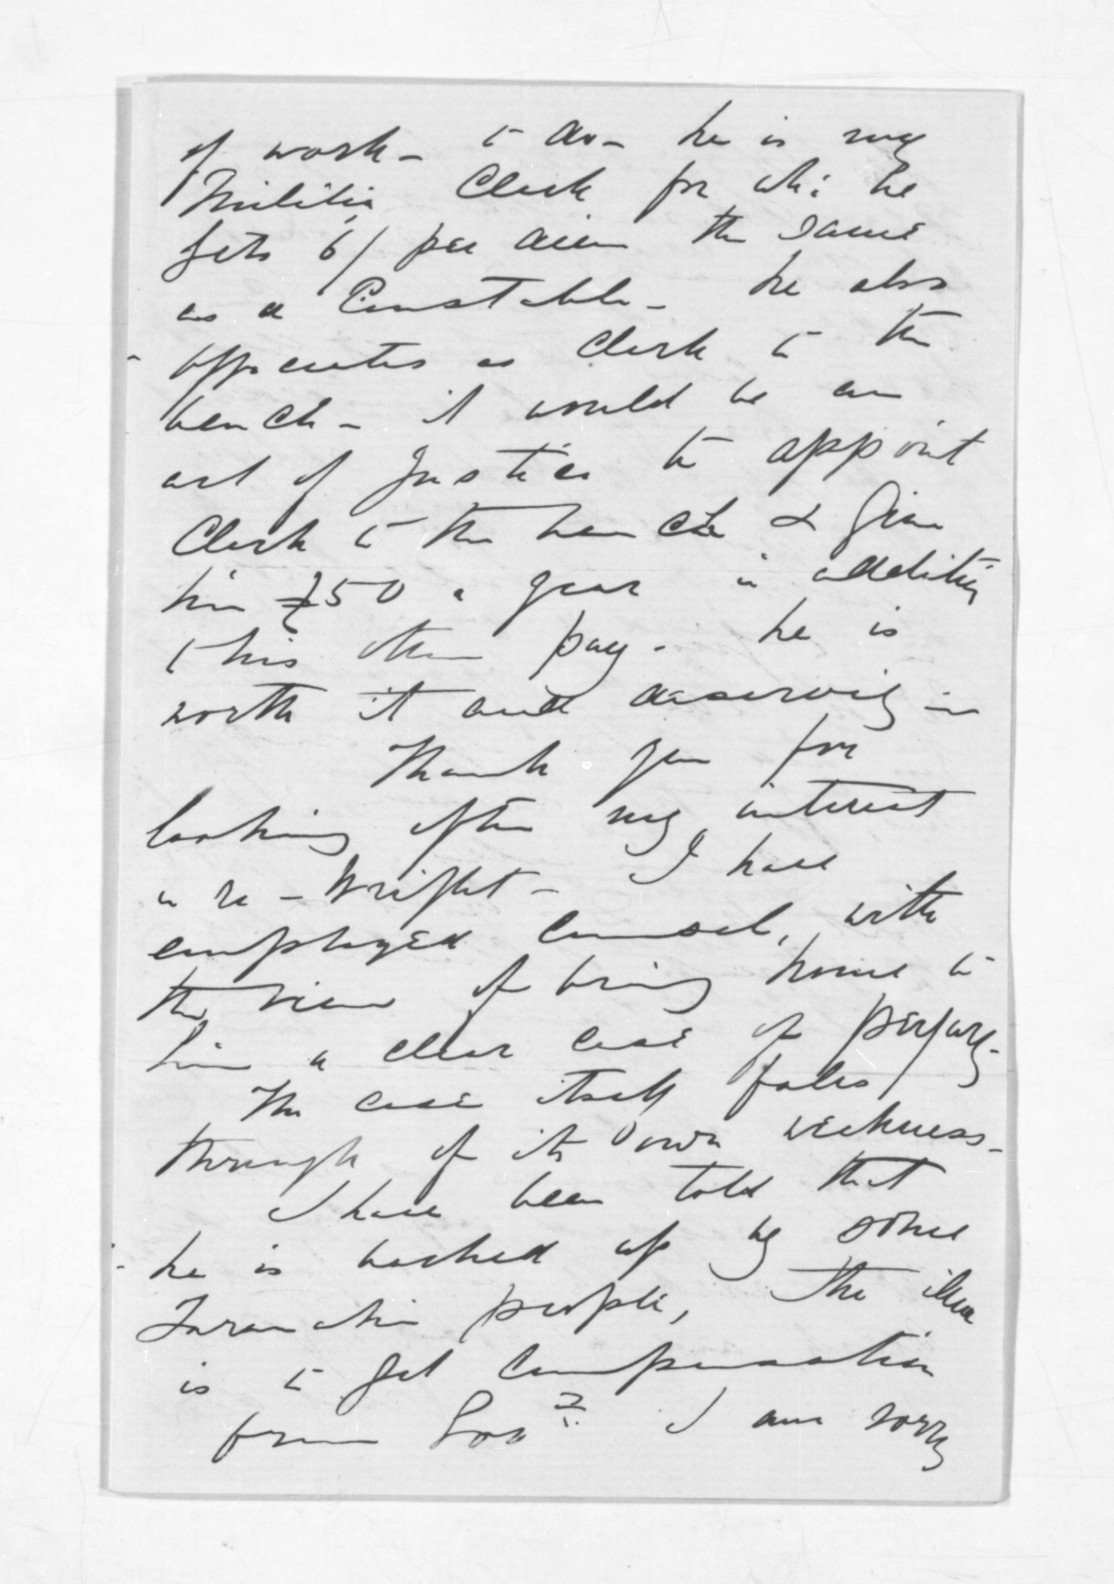 of work - to do - he is my
Militia Clerk for whi: he
gets 6/ per diem the same
as a Constable - he also
officiates as Clerk to the
bench - it would be an
act of Justice to appoint
Clerk to the bench & give
him £50 a year in addition
to his other pay - he is
worth it and deserving -
Thank you for
looking after my interest
in re - Wright - I have
employed Counsel, with
the view of bring home to
him a clear case of perjury -
The case itself fales
through of its own weekness -
I have been told that
he is backed up by some
Taranaki people, The idea
is to get Compensation
from Govt. I am sorry